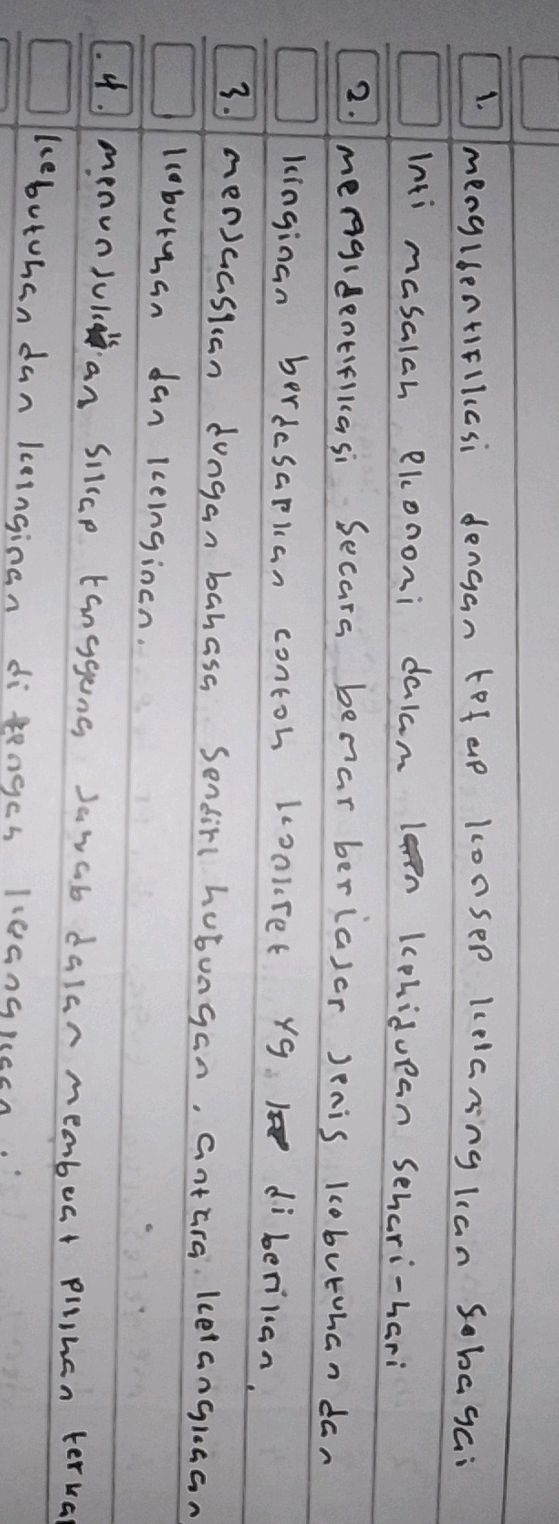 1. mengidentifikasi dengan tetap konsep kelangkaan sebagai
inti masalah ekonomi dalam kehidupan sehari-hari
2. menggidentifikasi secara bemar berlajar jenis kebutuhan dan
kinginan berdesarkan contoh konkret yg di berikan.
3. menjaaskan dungan bahasa sendiri hubungan, antara kelangkaan
kebutuhan dan keinginan.
4. menunjukkan sikap tanggung jawab dalam membuat pilihan terkai
kebutuhan dan keinginan di tengah keangkaan.